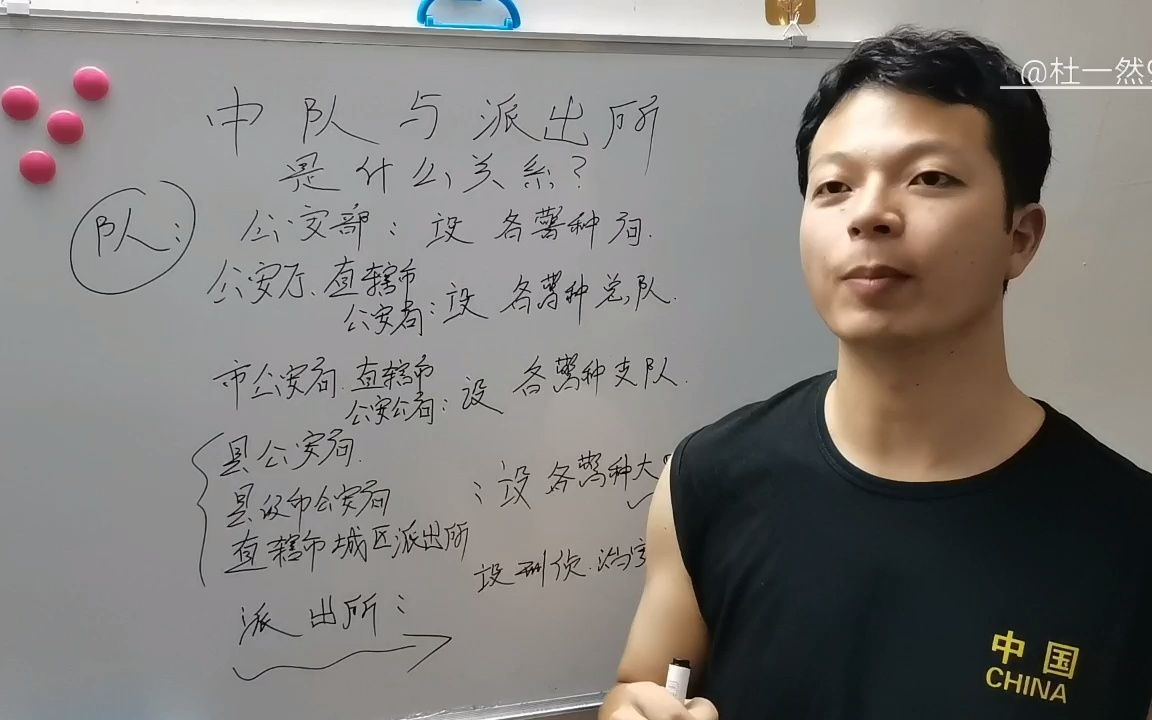 @杜一然
中队与派出所
是什么关系?
队:
公安部:设各警种局.
公安厅、直辖市
公安局:设各警种总队.
市公安局.直辖市
公安分局:设各警种支队.
县公安局.
县级市公安局
:设各警种大
直辖市城区派出所
设刑侦.治安
派出所:
中国
CHINA